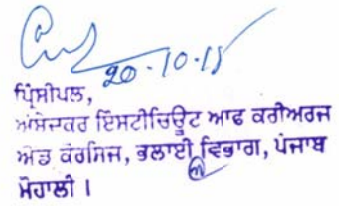 20-10-15
ਪ੍ਰਿੰਸੀਪਲ,
ਅੰਬੇਦਕਰ ਇੰਸਟੀਚਿਊਟ ਆਫ ਕਰੀਅਰਜ
ਐਂਡ ਕੋਰਸਿਜ, ਭਲਾਈ ਵਿਭਾਗ, ਪੰਜਾਬ
ਮੋਹਾਲੀ ।